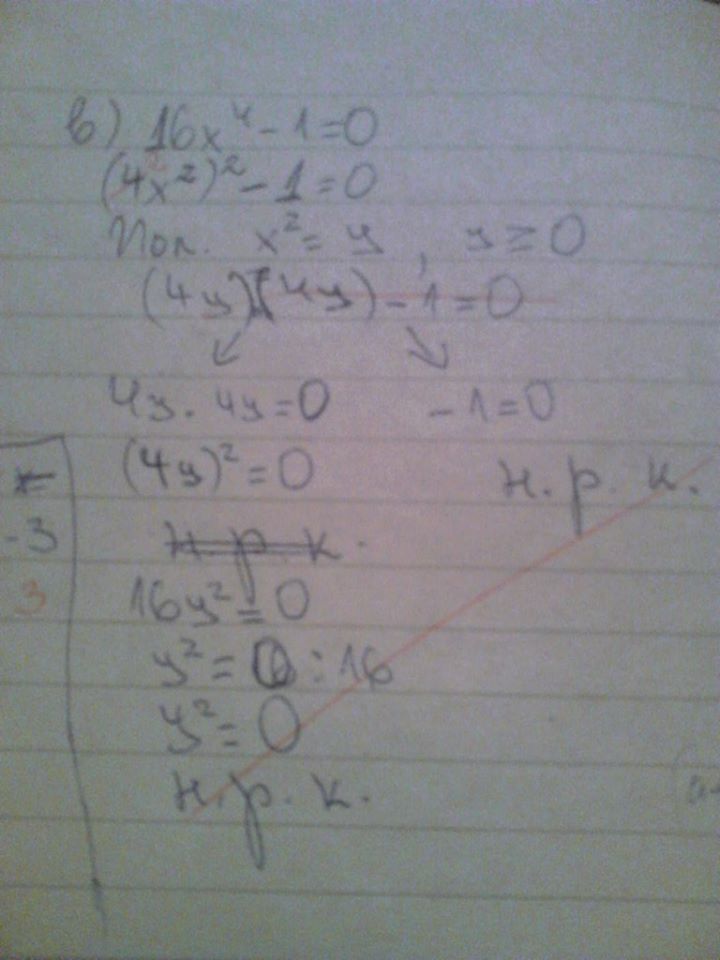 в) 16x⁴ - 1 = 0
(4x²)² - 1 = 0
Пол. x² = y, y ≥ 0
(4y)(4y) - 1 = 0
↙ ↘
4y . 4y = 0 - 1 = 0
(4y)² = 0 н. р. к.
н р к.
16y² = 0
y² = 0 : 16
y² = 0
н. р. к.
-3
3